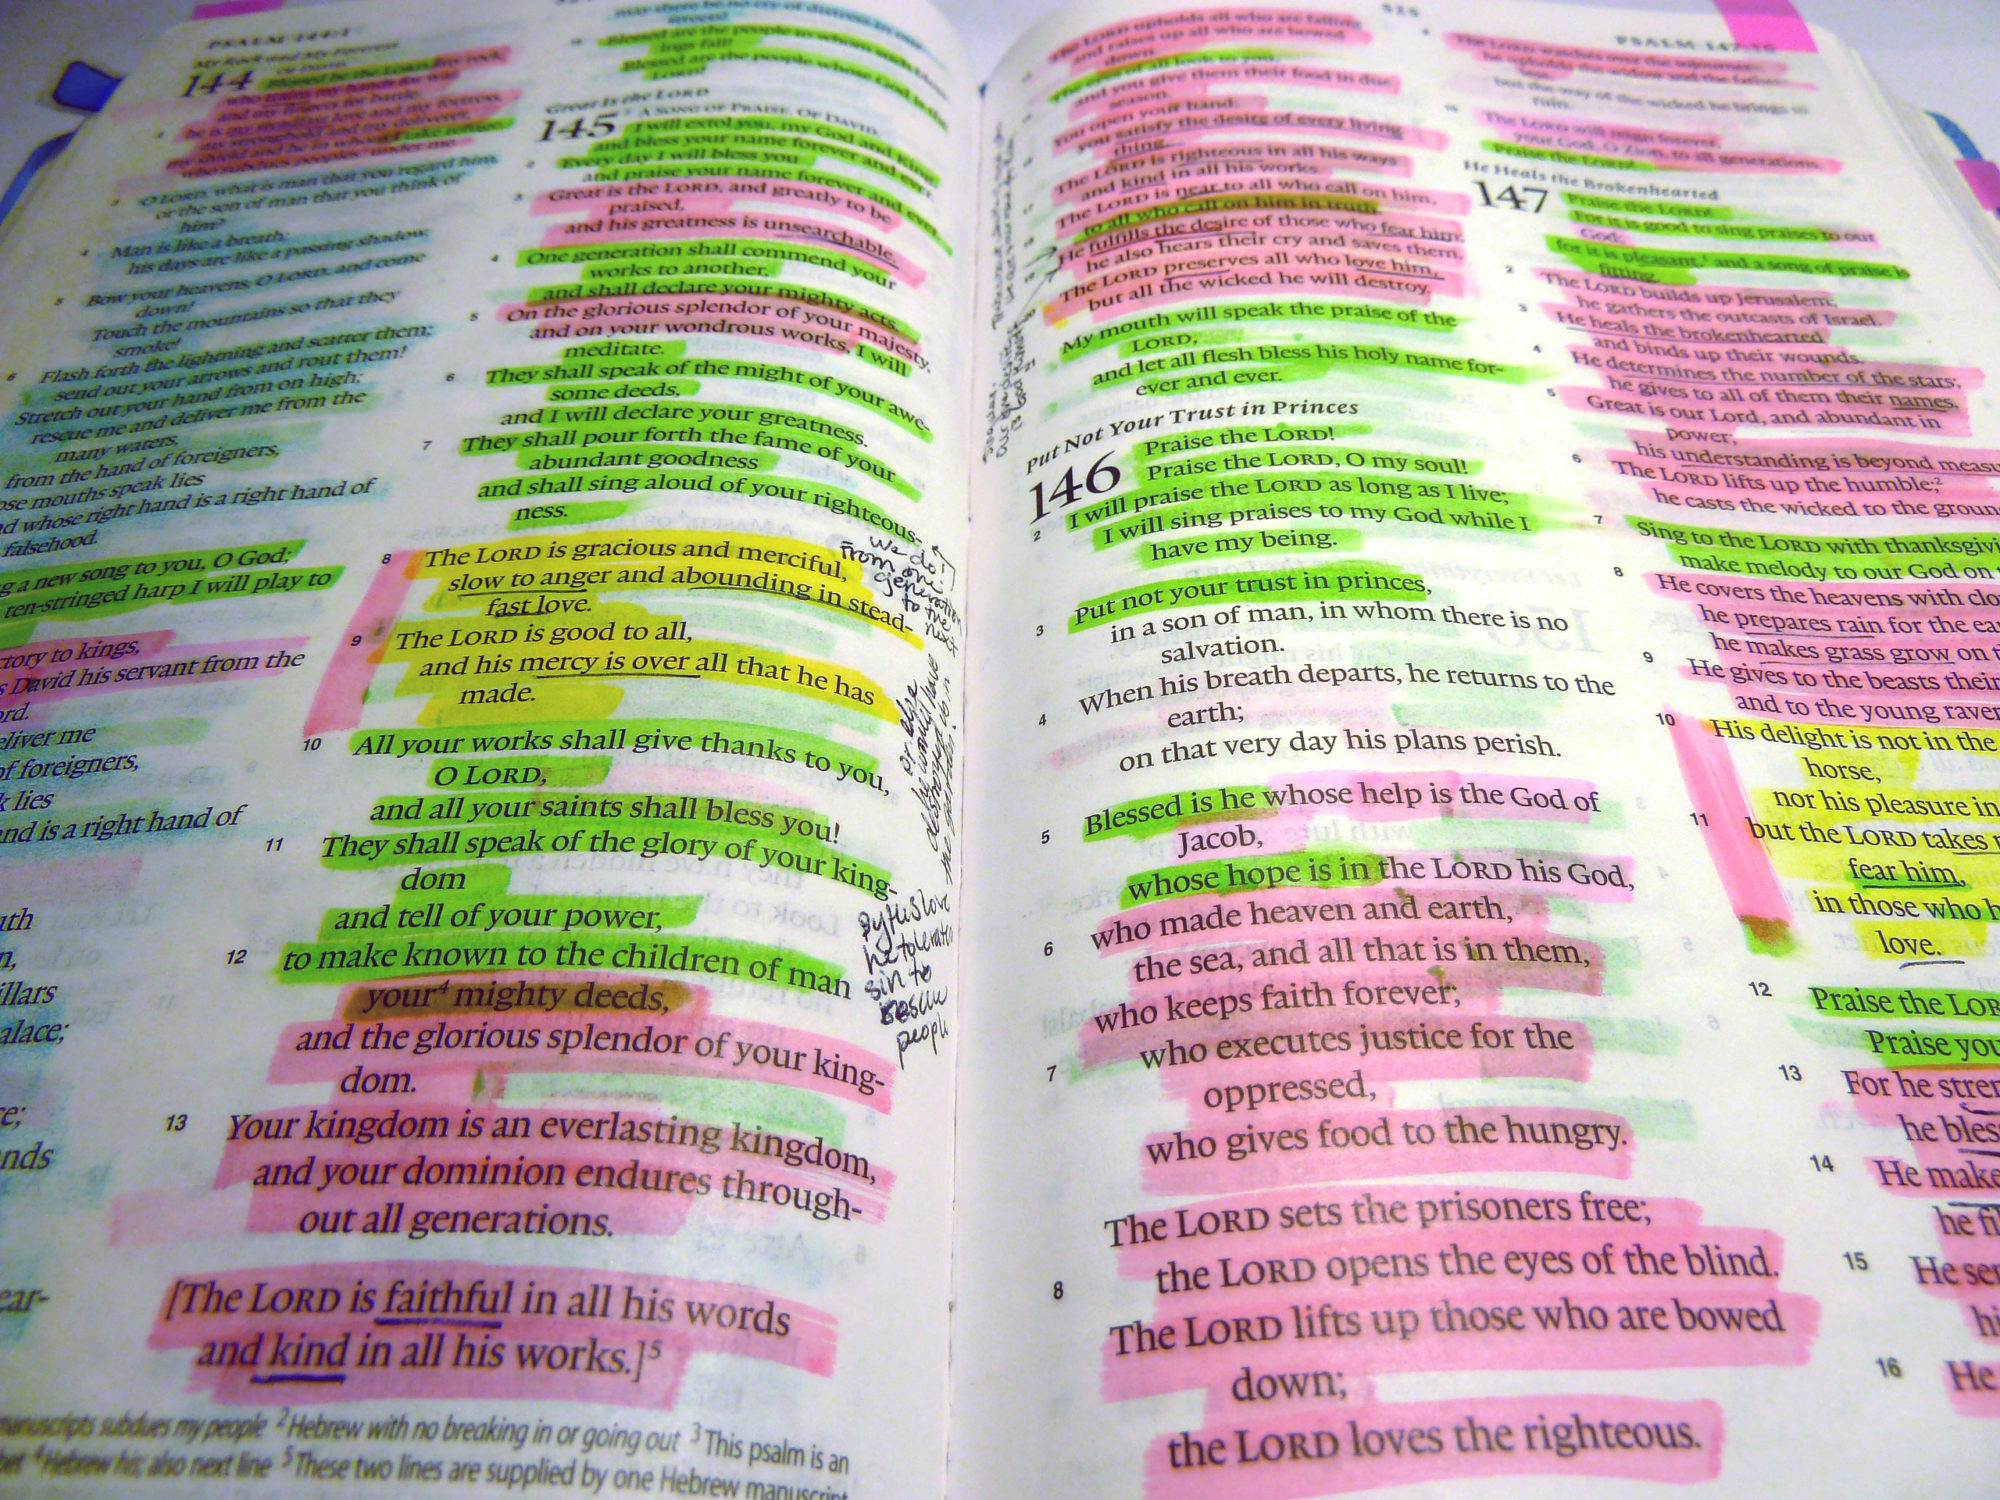 PSALM 144:1
My Rock and My Fortress
OF DAVID.
144 Blessed be the LORD, my rock,
who trains my hands for war,
and my fingers for battle;
2 he is my steadfast love and my fortress,
my stronghold and my deliverer,
my shield and he in whom I take refuge,
who subdues peoples under me.
3 O LORD, what is man that you regard him,
or the son of man that you think of
him?
4 Man is like a breath;
his days are like a passing shadow.
5 Bow your heavens, O LORD, and come
down!
Touch the mountains so that they
smoke!
6 Flash forth the lightning and scatter them;
send out your arrows and rout them!
Stretch out your hand from on high;
rescue me and deliver me from the
many waters,
from the hand of foreigners,
ose mouths speak lies
d whose right hand is a right hand of
falsehood.
g a new song to you, O God;
ten-stringed harp I will play to
ctory to kings,
s David his servant from the
ord.
eliver me
of foreigners,
k lies
and is a right hand of
uth
n,
illars
alace;
ce;
nds
ear-
Blessed are the people to whom such bless-
ings fall!
Blessed are the people whose God is the
LORD!
Great Is the LORD
145 A SONG OF PRAISE. OF DAVID.
I will extol you, my God and King,
and bless your name forever and ever.
2 Every day I will bless you
and praise your name forever and ever.
3 Great is the LORD, and greatly to be
praised,
and his greatness is unsearchable.
4 One generation shall commend your
works to another,
and shall declare your mighty acts.
5 On the glorious splendor of your majesty,
and on your wondrous works, I will
meditate.
6 They shall speak of the might of your awe-
some deeds,
and I will declare your greatness.
7 They shall pour forth the fame of your
abundant goodness
and shall sing aloud of your righteous-
ness.
8 The LORD is gracious and merciful,
slow to anger and abounding in stead-
fast love.
9 The LORD is good to all,
and his mercy is over all that he has
made.
10 All your works shall give thanks to you,
O LORD,
and all your saints shall bless you!
11 They shall speak of the glory of your king-
dom
and tell of your power,
12 to make known to the children of man
your⁴ mighty deeds,
and the glorious splendor of your king-
dom.
13 Your kingdom is an everlasting kingdom,
and your dominion endures through-
out all generations.
[The LORD is faithful in all his words
and kind in all his works.]⁵
we do!
From one
generation
to the
next
or else
he would have
destroyed us in
By His love
he tolerates
sin to
rescue
people
manuscripts subdues my people ² Hebrew with no breaking in or going out ³ This psalm is an
⁴ Hebrew his; also next line ⁵ These two lines are supplied by one Hebrew manuscript
525
The LORD upholds all who are falling
and raises up all who are bowed
down.
The eyes of all look to you,
and you give them their food in due
season.
You open your hand;
you satisfy the desire of every living
thing.
The LORD is righteous in all his ways
and kind in all his works.
The LORD is near to all who call on him,
to all who call on him in truth.
He fulfills the desire of those who fear him;
he also hears their cry and saves them.
The LORD preserves all who love him,
but all the wicked he will destroy.
My mouth will speak the praise of the
LORD,
and let all flesh bless his holy name for-
ever and ever.
Put Not Your Trust in Princes
146 Praise the LORD!
Praise the LORD, O my soul!
2 I will praise the LORD as long as I live;
I will sing praises to my God while I
have my being.
3 Put not your trust in princes,
in a son of man, in whom there is no
salvation.
4 When his breath departs, he returns to the
earth;
on that very day his plans perish.
5 Blessed is he whose help is the God of
Jacob,
whose hope is in the LORD his God,
6 who made heaven and earth,
the sea, and all that is in them,
who keeps faith forever;
7 who executes justice for the
oppressed,
who gives food to the hungry.
The LORD sets the prisoners free;
8 the LORD opens the eyes of the blind.
The LORD lifts up those who are bowed
down;
the LORD loves the righteous.
PSALM 147:16
9 The LORD watches over the sojourners;
he upholds the widow and the father-
less,
but the way of the wicked he brings to
ruin.
10 The LORD will reign forever,
your God, O Zion, to all generations.
Praise the LORD!
He Heals the Brokenhearted
147 Praise the LORD!
For it is good to sing praises to our
God;
for it is pleasant,¹ and a song of praise is
fitting.
2 The LORD builds up Jerusalem;
he gathers the outcasts of Israel.
3 He heals the brokenhearted
and binds up their wounds.
4 He determines the number of the stars;
he gives to all of them their names.
5 Great is our Lord, and abundant in
power;
his understanding is beyond measu
6 The LORD lifts up the humble;²
he casts the wicked to the groun
7 Sing to the LORD with thanksgivi
make melody to our God on
8 He covers the heavens with clo
he prepares rain for the ea
he makes grass grow on t
9 He gives to the beasts their
and to the young raven
10 His delight is not in the
horse,
nor his pleasure in
11 but the LORD takes
fear him,
in those who h
love.
12 Praise the LOR
Praise you
13 For he stren
he bless
14 He make
he fi
15 He sen
hi
16 He